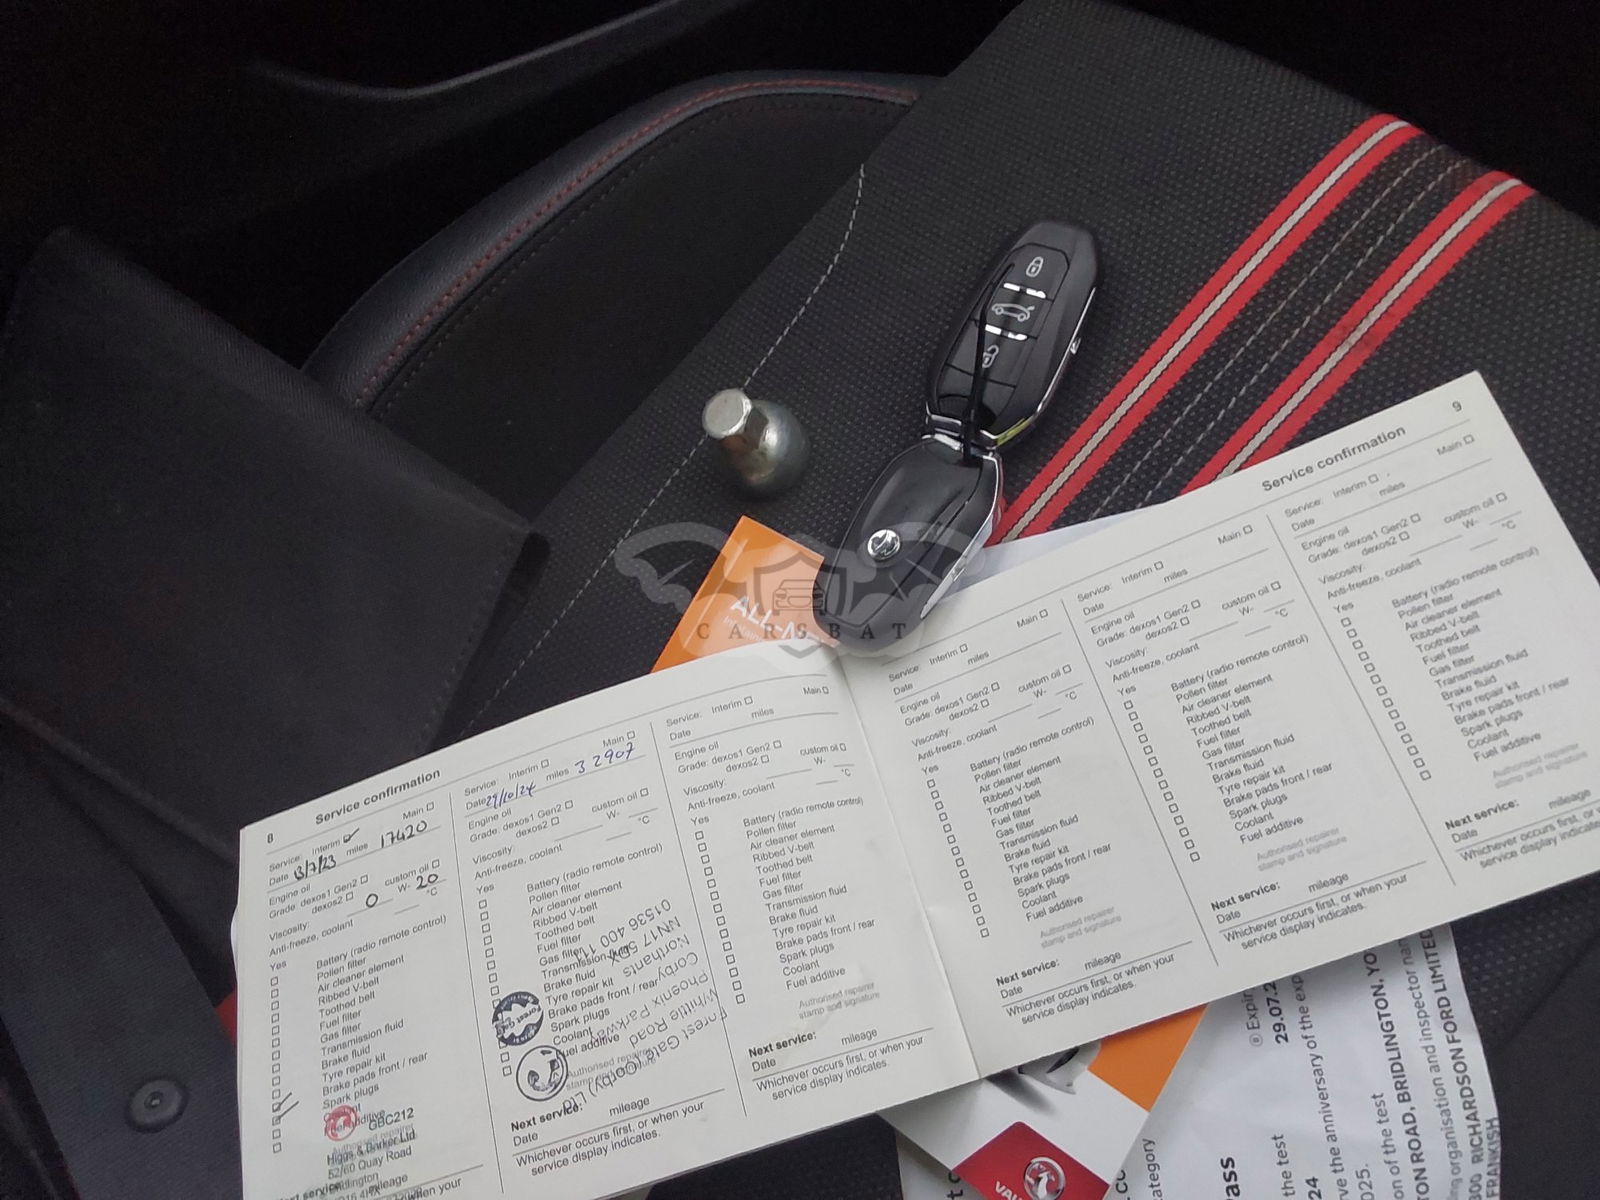 ALL-
CARSBAT
8
Service confirmation
Service: Interim ✓ Main
Date 13/7/23 miles 17420
Engine oil
Grade: dexos1 Gen2 custom oil
dexos2
Viscosity: 0 W- 20
Anti-freeze, coolant °C
Yes
Battery (radio remote control)
Pollen filter
Air cleaner element
Ribbed V-belt
Toothed belt
Fuel filter
Gas filter
Transmission fluid
Brake fluid
Tyre repair kit
Brake pads front / rear
Spark plugs
Coolant
Fuel additive
GBC212
Higgs & Barker Ltd
52/60 Quay Road
Bridlington
Service: Interim Main
Date 29/10/24 miles 32907
Engine oil
Grade: dexos1 Gen2 custom oil
dexos2
Viscosity: W-
Anti-freeze, coolant °C
Yes
Battery (radio remote control)
Pollen filter
Air cleaner element
Ribbed V-belt
Toothed belt
Fuel filter
Gas filter
Transmission fluid
Brake fluid
Tyre repair kit
Brake pads front / rear
Spark plugs
Coolant
Fuel additive
Authorised repairer
stamp and signature
Forest Gate (Corby) Ltd
Whittle Road
Phoenix Parkway
Corby
Northants
NN17 5DX
01536 400
Next service:
Date mileage
Whichever occurs first, or when your
service display indicates.
Service: Interim Main
Date miles
Engine oil
Grade: dexos1 Gen2 custom oil
dexos2
Viscosity: W-
Anti-freeze, coolant °C
Yes
Battery (radio remote control)
Pollen filter
Air cleaner element
Ribbed V-belt
Toothed belt
Fuel filter
Gas filter
Transmission fluid
Brake fluid
Tyre repair kit
Brake pads front / rear
Spark plugs
Coolant
Fuel additive
Authorised repairer
stamp and signature
Next service:
Date mileage
Whichever occurs first, or when your
service display indicates.
9
Service confirmation
Service: Interim Main
Date miles
Engine oil
Grade: dexos1 Gen2 custom oil
dexos2
Viscosity: W-
Anti-freeze, coolant °C
Yes
Battery (radio remote control)
Pollen filter
Air cleaner element
Ribbed V-belt
Toothed belt
Fuel filter
Gas filter
Transmission fluid
Brake fluid
Tyre repair kit
Brake pads front / rear
Spark plugs
Coolant
Fuel additive
Authorised repairer
stamp and signature
Next service:
Date mileage
Whichever occurs first, or when your
service display indicates.
Service: Interim Main
Date miles
Engine oil
Grade: dexos1 Gen2 custom oil
dexos2
Viscosity: W-
Anti-freeze, coolant °C
Yes
Battery (radio remote control)
Pollen filter
Air cleaner element
Ribbed V-belt
Toothed belt
Fuel filter
Gas filter
Transmission fluid
Brake fluid
Tyre repair kit
Brake pads front / rear
Spark plugs
Coolant
Fuel additive
Authorised repairer
stamp and signature
Next service:
Date mileage
Whichever occurs first, or when your
service display indicates.
Service: Interim Main
Date miles
Engine oil
Grade: dexos1 Gen2 custom oil
dexos2
Viscosity: W-
Anti-freeze, coolant °C
Yes
Battery (radio remote control)
Pollen filter
Air cleaner element
Ribbed V-belt
Toothed belt
Fuel filter
Gas filter
Transmission fluid
Brake fluid
Tyre repair kit
Brake pads front / rear
Spark plugs
Coolant
Fuel additive
Authorised repairer
stamp and signature
Next service:
Date mileage
Whichever occurs first, or when your
service display indicates.
ategory
ass
the test
24
Expir
29.07.2
ve the anniversary of the exp
025.
on of the test
TON ROAD, BRIDLINGTON, YO
organisation and inspector nam
00 RICHARDSON FORD LIMITED
FRANKISH
VAU